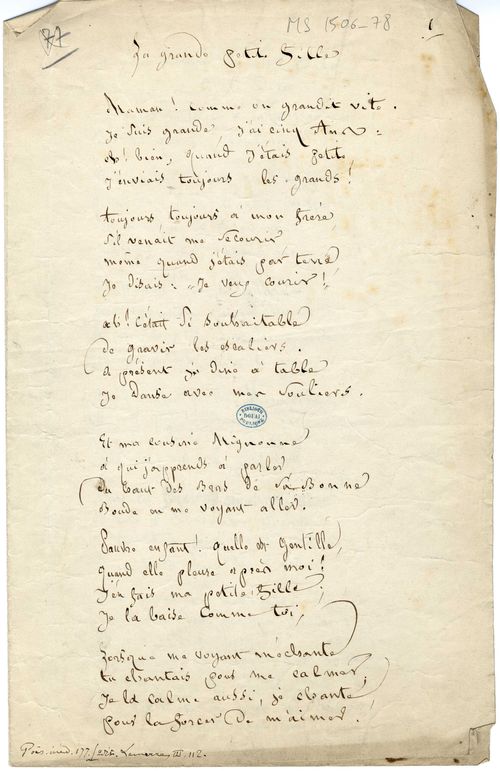 77
MS 1506-78
1
La grande petite fille
Maman ! comme on grandit vite.
Je suis grande, j'ai cinq Ans :
eh ! bien, quand j'étais petite,
J'enviais toujours les grands !
toujours toujours à mon frère
S'il venait me secourir
même quand j'étais par terre
Je disais : « Je veux courir !
ah ! c'était si souhaitable
de gravir les escaliers.
à présent je dîne à table
Je danse avec mes souliers.
BIBLIOTH
DOUAI
PUBLIQUE
Et ma cousine Mignonne
à qui j'apprends à parler
du haut des Bras de sa Bonne
Boude en me voyant aller.
Pauvre enfant ! qu'elle est gentille,
quand elle pleure après moi !
J'en fais ma petite fille ;
Je la baise comme toi,
Lorsque me voyant méchante
tu chantais pour me calmer,
Je la calme aussi, je chante,
pour la forcer de m'aimer.
Poés. inéd. 177. Lemerre III, 112.